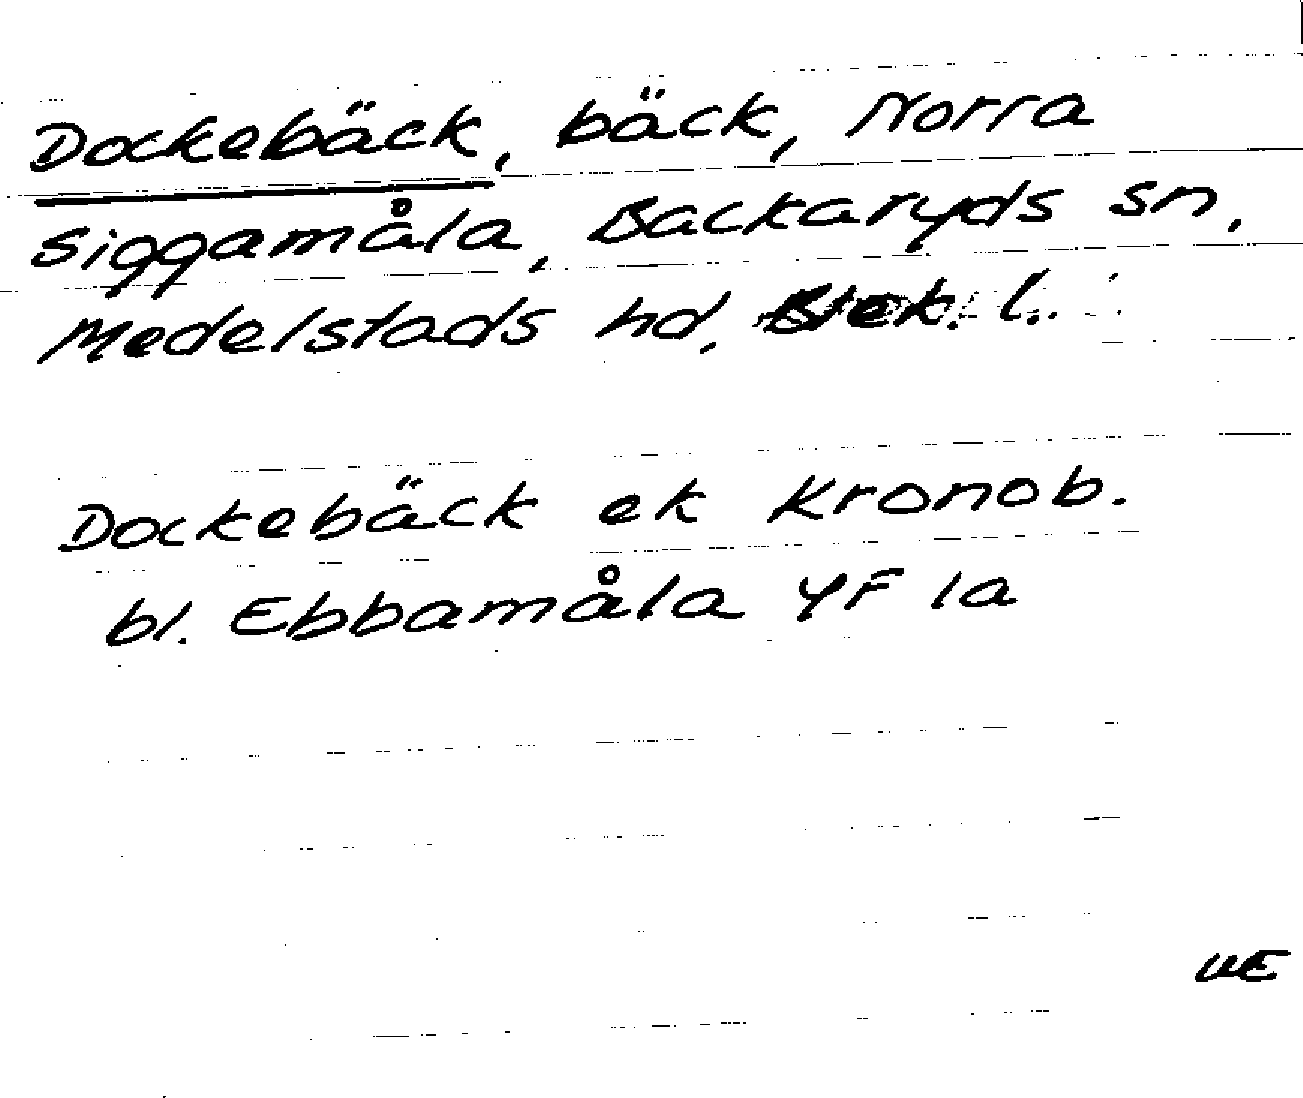 Dockebäck, bäck, Norra
Siggamåla, Backaryds sn,
Medelstads hd, Blek. l.
Dockebäck ek Kronob.
bl. Ebbamåla YF 1a
WE